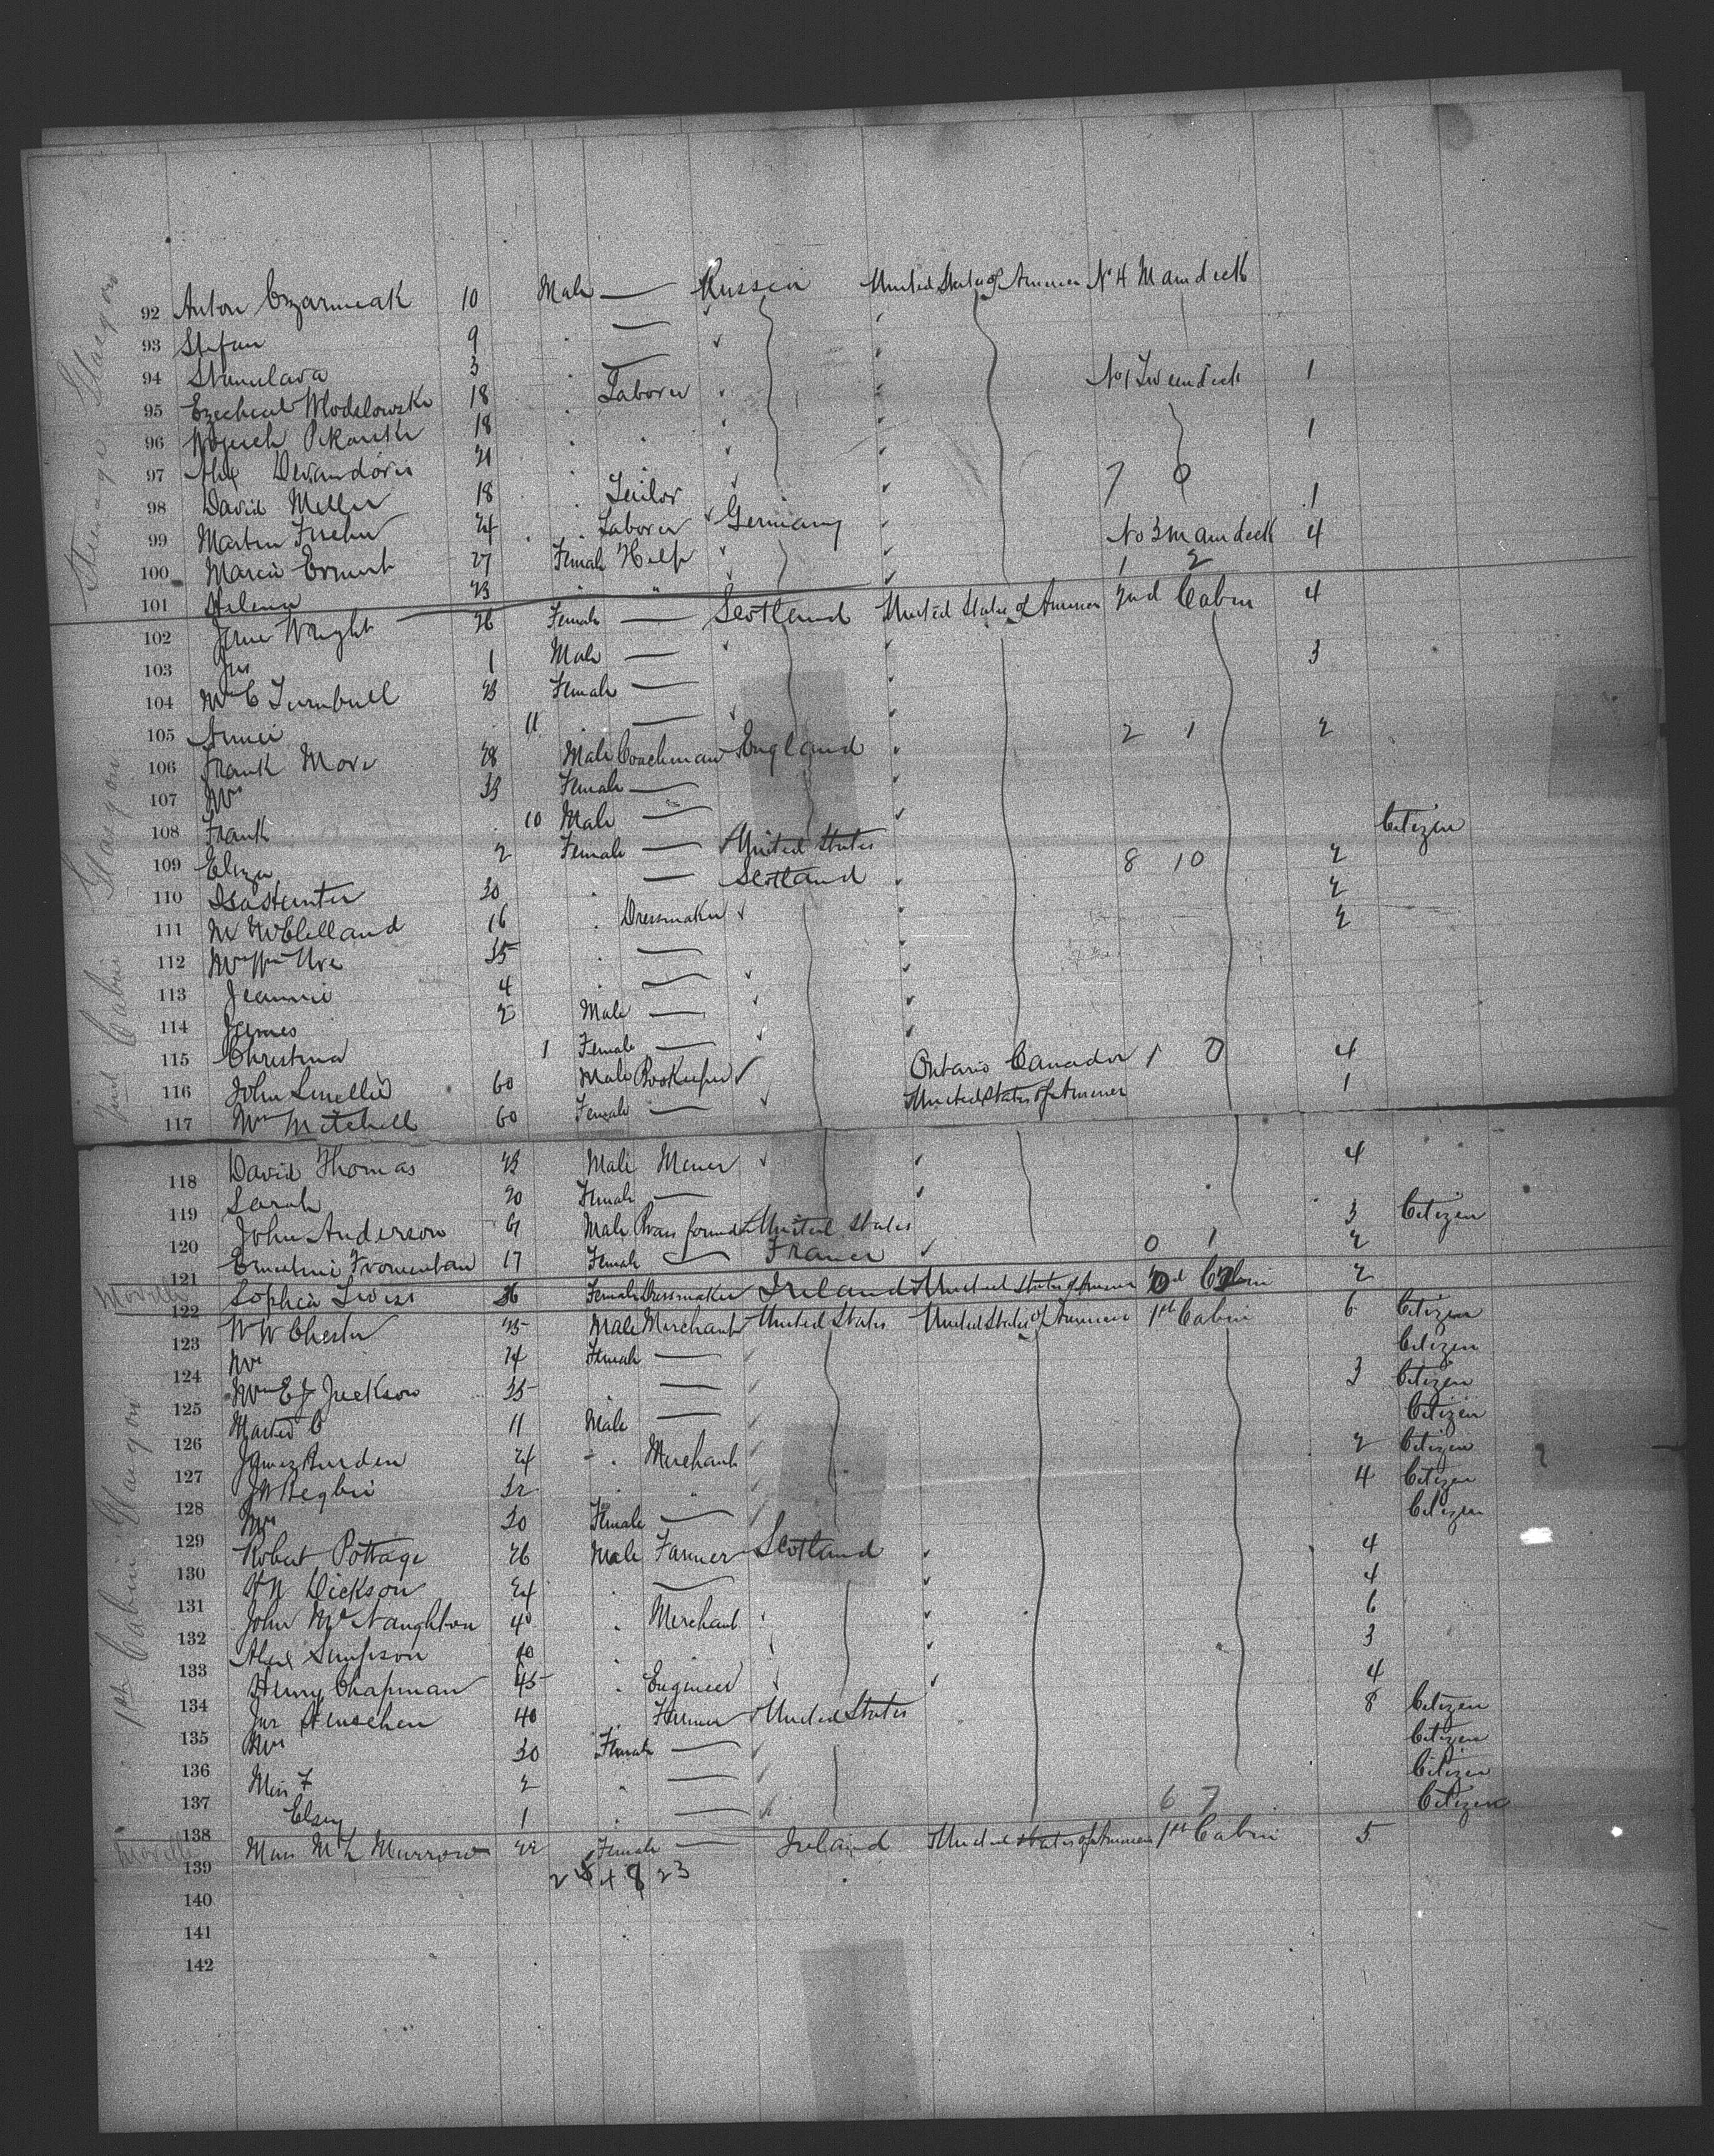 Steerage Glasgow
92 Anton Czarneak 10 Male — Russia United States of America No 4 Main deck
93 Stefan 9 " —
94 3 " —
95 18 " Laborer No 1 Tween deck 1
96 18 " " 1
97 Alex 21 " " 7 0
98 David Meller 18 " Tailor 1
99 Martin 24 " Laborer Germany No 3 Main deck 4
100 Maria 27 Female Help 1 2
101 Helena 23 " "
2nd Cabin Glasgow
102 Jane Wright 26 Female — Scotland United States of America 2nd Cabin 4
103 Jas 1 Male — 3
104 Mrs C Turnbull 23 Female —
105 Annie 11 " — 2 1 2
106 Frank More 28 Male Coachman England
107 Mrs 33 Female —
108 Frank 10 Male —
109 Eliza 2 Female — United States 8 10 2 Citizen
110 30 " — Scotland 2
111 M McClelland 16 " Dressmaker 2
112 Mrs Wm Ure 35 " —
113 Jeannie 4 " —
114 James 2 Male —
115 Christina 1 Female —
116 John Smellie 60 Male Bookeeper Ontario Canada 1 0 4
117 Mrs Mitchell 60 Female — United States of America 1
118 David Thomas 23 Male Miner 4
119 Sarah 20 Female —
120 John Anderson 61 Male Brass founder United States 3 Citizen
121 Ernestine Fromentau 17 Female — France 0 1 2
Moville
122 Sophia 36 Female Dressmaker Ireland United States of America 2nd Cabin 2
1st Cabin Glasgow
123 W W Chester 25 Male Merchant United States United States of America 1st Cabin 6 Citizen
124 Mrs 24 Female — Citizen
125 Mrs E J Jackson 35 " — 3 Citizen
126 Master C 11 Male — Citizen
127 James Burden 24 " Merchant 2 Citizen
128 J W Begbie 32 " " 4 Citizen
129 Mrs 30 Female — Citizen
130 Robert Pottage 26 Male Farmer Scotland 4
131 Dickson 24 " — 4
132 John McNaughton 40 " Merchant 6
133 Alex Simpson 40 " 3
134 Henry Chapman 45 " Engineer 4
135 Jas Henschen 40 " United States 8 Citizen
136 Mrs 30 Female — Citizen
137 Miss F 2 " — Citizen
138 Elsey 1 " — 6 7 Citizen
Moville
139 Miss M L Murrow 22 Female — Ireland United States of America 1st Cabin 5
140
141
142